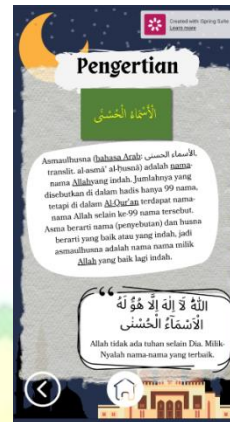 Created with Spring Suite
Learn more
Pengertian
الْأَسْمَاءُ الْحُسْنَى
Asmaulhusna (bahasa Arab: الأسماء الحسنى,
translit. al-asmā' al-ḥusnā) adalah nama-
nama Allahyang indah. Jumlahnya yang
disebutkan di dalam hadis hanya 99 nama,
tetapi di dalam Al-Qur'an terdapat nama-
nama Allah selain ke-99 nama tersebut.
Asma berarti nama (penyebutan) dan husna
berarti yang baik atau yang indah, jadi
asmaulhusna adalah nama nama milik
Allah yang baik lagi indah.
اَللّٰهُ لَآ اِلٰهَ اِلَّا هُوَۗ لَهُ
الْاَسْمَاۤءُ الْحُسْنٰى
Allah tidak ada tuhan selain Dia. Milik-
Nyalah nama-nama yang terbaik.